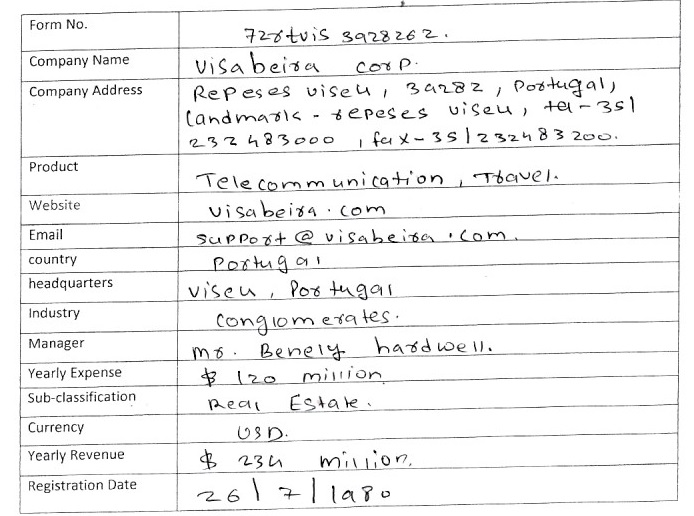 Form No. 72rtvis 3928262.
Company Name Visabeira corp.
Company Address Repeses viseu, 39282, Portugal,
Landmark - repeses viseu, tel-351
232483000, fax-351232483200.
Product Telecommunication, Travel.
Website visabeira.com
Email support@visabeira.com.
country Portugal
headquarters viseu, Portugal
Industry conglomerates.
Manager mr. Benely hardwell.
Yearly Expense $ 120 million
Sub-classification Real Estate.
Currency USD.
Yearly Revenue $ 234 million.
Registration Date 26/7/1980